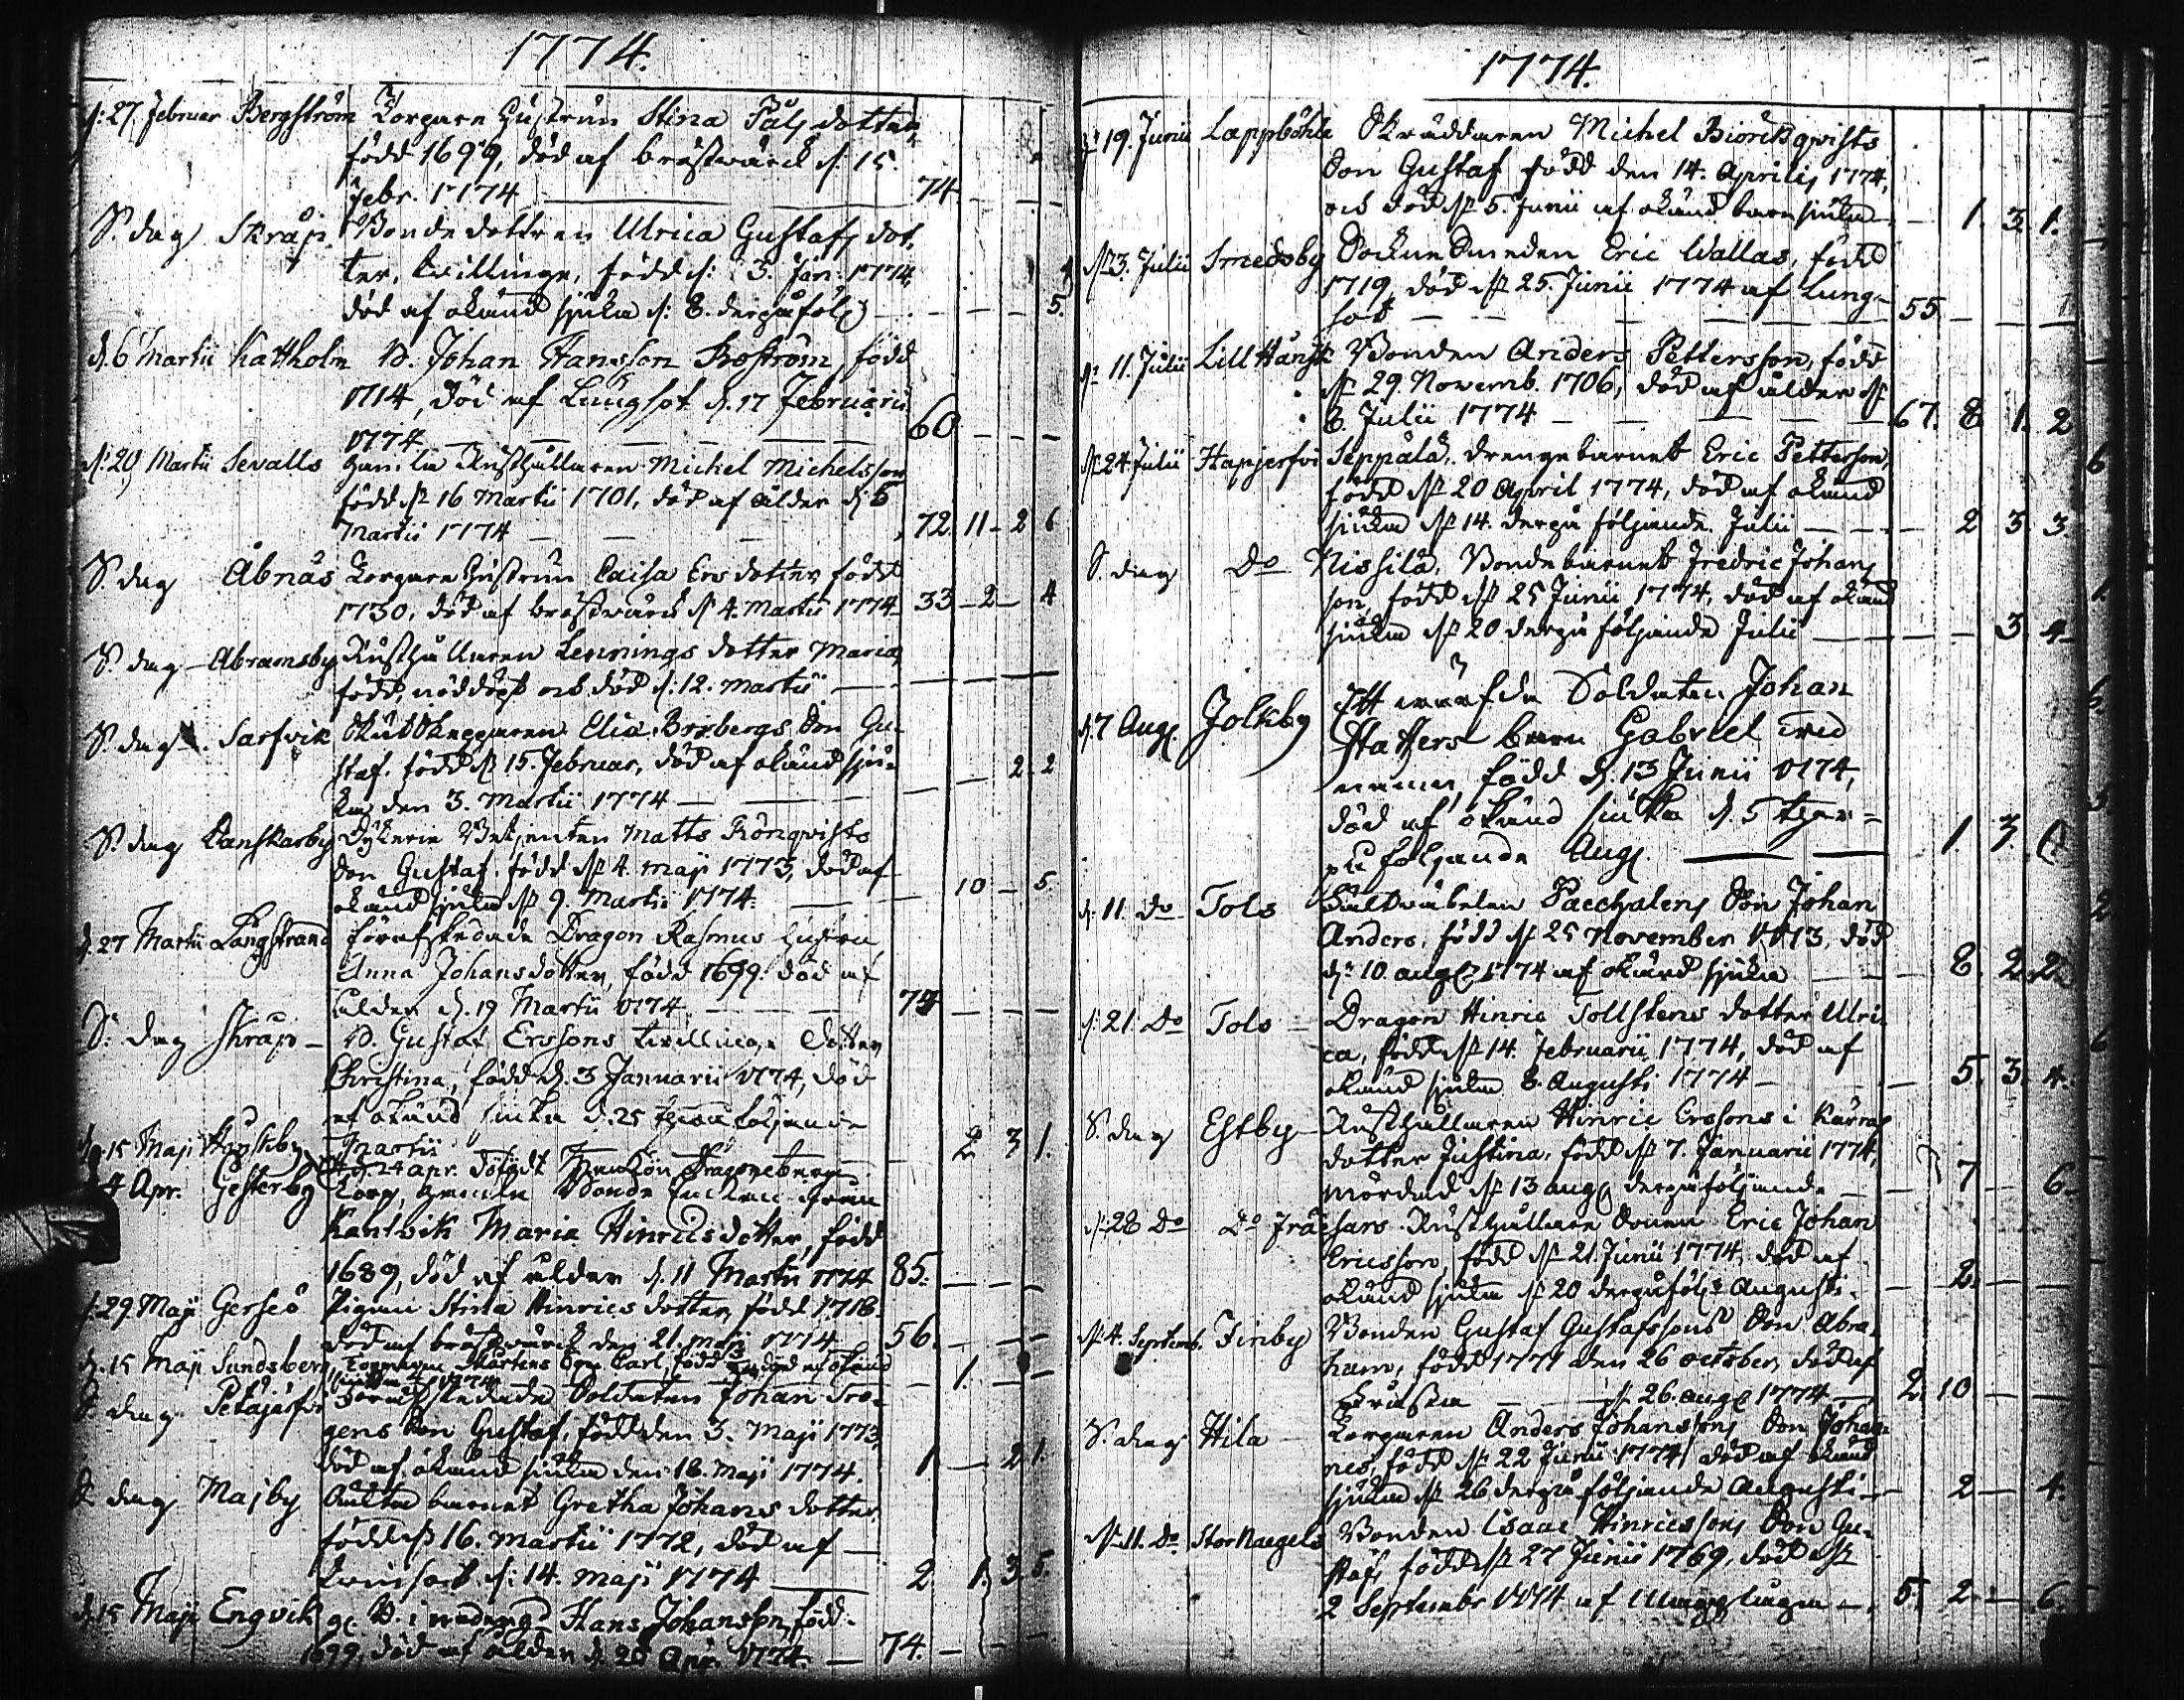 1774.
d: 27. Februar Bergström Torparen Hustrun Stina Påls dotter
född 1699, död af bröstvärck d: 15.
Febr. 1774 74.
S. dag Skräp. Bonde dottren Ulrica Gustafs dot-
ter, tvillinge, född d: 3. Jan: 1774,
död af okänd sjuka d: 8. derpåföl 5.
d. 6 Martii Kattholm B. Johan Hansson Boström, född
1714, död af Lungsot d. 17 Februarii
1774 60
d: 20 Martii Sevalls Gamla Rusthållaren Michel Michelsson
född d: 16 Martii 1701, död af ålder d. 5
Martii 1774 72. 11 - 2 6
S. dag Åbnäs Torpare Hustrun Caisa Ersdotter född
1730, död af bröstvärck d. 4. Martii 1774 33 - 2 - 4
S. dag Abramsby Rusthållaren Lennings dotter Maria,
född, nöddöpt och död d: 12. Martii
S. dag Sarfvik Elia Brobergs Son Gu-
staf. född d: 15. Februar, död af okänd sju-
ka den 3. Martii 1774 2. 2
S. dag Danskarby Betjenten Matts Rönqvists
Son Gustaf. född d: 4. Maji 1773, död af
okänd sjuka d: 9. Martii 1774. 10 - 5.
d. 27 Martii Långstrand förafskedade Dragon Rasmus Hustru
Anna Johansdotter, född 1699. död af
ålder d. 19 Martii 1774 74
S. dag Skräp - B. Gustaf Erssons tvillinge dotter
Christina, född d. 3 Januarii 1774, död
af okänd sjuka d. 25 följande
Martii 2 3 1.
d. 15 Maji d. 24 apr. dödfödt
4 Apr. Gesterby Torp, gamla Bonde från
Kantvik Maria Hinricsdotter, född
1689, död af ålder d. 11 Martii 1774 85.
d: 29. Maji Gerseö Pigan Stina Hinrics dotter, född 1718.
död af bröstvärck den 21. Maji 1774 56.
d. 15 Maji Sundsberg Torparen Mårtens Son Carl, född död af okänd
1.
S. dag Petäjärfvi Förafskedade Soldaten Johan Tro-
gens Son Gustaf, född den 3. Maji 1773,
död af okänd sjuka den 18. Maji 1774. 1 - 2 1.
S. dag Majby barnet Gretha Johans dotter
född d: 16. Martii 1772, död af
d: 14. Maji 1774 2. 1. 3. 5.
d. 15 Maji Engvik B. Hans Johansson, född
1699, död af ålder d. 28 Apr. 1774. 74.
1774.
d: 19. Junii Lappböhle Skräddaren Michel Biörckqvists
Son Gustaf född den 14. Aprilis 1774,
och död d: 5. Junii af okänd barnsjuka 1. 3. 1.
d: 3. Julii Smedsby Sockne Smeden Eric Wallas, född
1719, död d: 25. Junii 1774 af Lung-
sot 55
d: 11. Julii Lill Känsk Bonden Anders Pettersson, född
d: 29. Novemb. 1706, död af ålder d:
8. Julii 1774 67. 8. 1. 2
d: 24. Julii Hapjerfvi Seppälä, drenge barnet Eric Petterson,
född d: 20 April 1774, död af okänd
sjuka d: 14. derpå följande Julii 2 3. 3.
S. dag Do Nissilä, Bondebarnet Fredric Johans
son, född d: 25 Junii 1774, död af okänd
sjuka d: 20 derpå följande Julii 3 4
d. 7 Aug. Jolkby Soldaten Johan
barn Gabriel vid
namn, född d. 13 Junii 1774,
död af okänd sjuka d. 5 ther-
på följande Aug. 1 3 0
d. 11. Do Tols Paechalens Son Johan
Anders, född d: 25 November 1773, död
d: 10. aug. 1774 af okänd sjuka 8. 2. 2
d: 21. Do Tols Dragon Hinric Tollstens dotter Ulri-
ca, född d: 14. Februarii 1774, död af
okänd sjuka 8. Augusti 1774 5. 3. 4.
S. dag Estby Rusthållaren Hinric Erssons i Karras
dotter Justina, född d: 7. Januarii 1774,
mördad d: 13 aug. derpåföljande 7 - 6
d: 28 Do Do Fräsars Rusthållare Sonen Eric Johan
Ericsson, född d: 21. Junii 1774, död af
okänd sjuka d: 20 derpåföl: Augusti. 2.
d: 4. Septemb. Finby Bonden Gustaf Gustafssons Son Abra-
ham, född 1771 den 26 october, död af
d: 26. aug. 1774 2. 10
S. dag Hila Torparen Anders Johanssons Son Johan-
nes, född d: 22 Junii 1774, död af okänd
sjuka d: 26 derpå följande Augusti 2 - 4.
d: 11. Do Stor Naegels Bonden Isaac Hinricssons Son Gu-
staf, född d: 27 Junii 1769, död d:
2 Septembr 1774 af 5. 2. - 6.